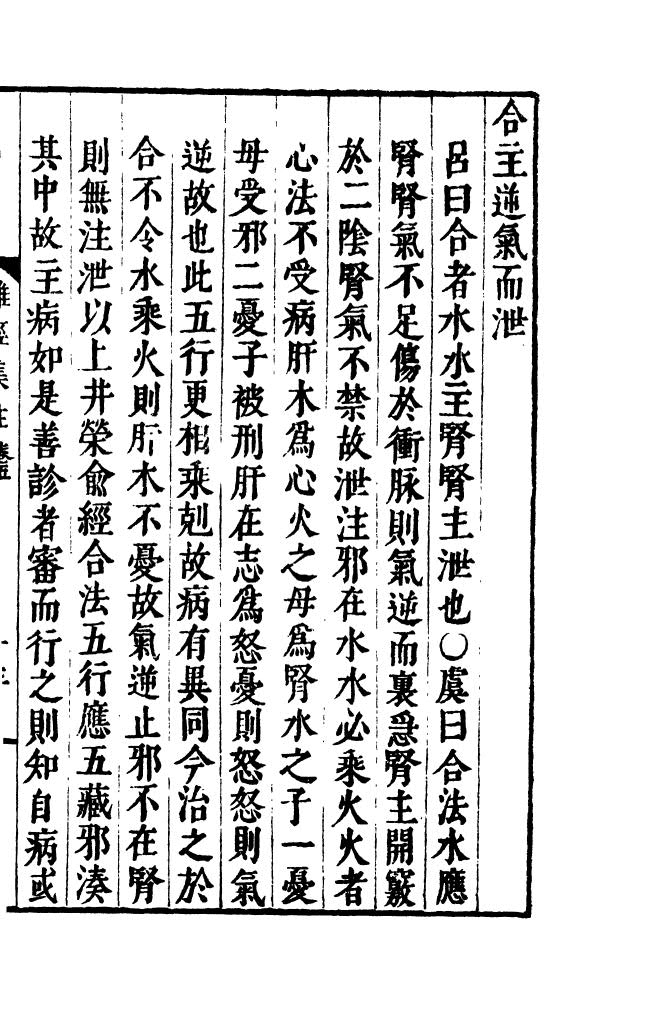 合主逆氣而泄
呂曰合者水水主腎腎主泄也○虞曰合法水應
腎腎氣不足傷於衝脉則氣逆而裏急腎主開竅
於二陰腎氣不禁故泄注邪在水水必乘火火者
心法不受病肝木爲心火之母爲腎水之子一憂
母受邪二憂子被刑肝在志爲怒憂則怒怒則氣
逆故也此五行更相乘剋故病有異同今治之於
合不令水乘火則肝木不憂故氣逆止邪不在腎
則無注泄以上井榮俞經合法五行應五藏邪湊
其中故主病如是善診者審而行之則知自病或